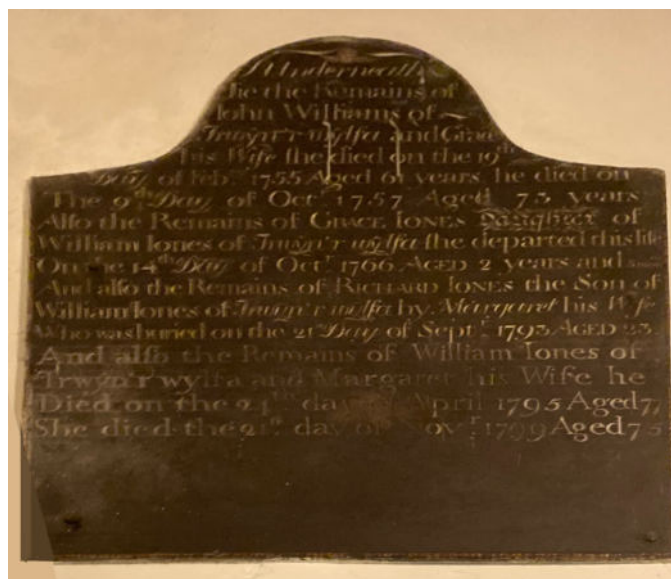 Underneath
lie the Remains of
John Williams of
Trwyn'r wylfa and Grace
his Wife ſhe died on the 19th
Day of Feb.ry 1755 Aged 61 years he died on
The 9th Day of Oct.r 1757 Aged 73 years
Alſo the Remains of GRACE IONES Daughter of
William Iones of Trwyn'r wylfa ſhe departed this life
On the 14th Day of Oct.r 1766 AGED 2 years and
And alſo the Remains of RICHARD IONES the Son of
William Iones of Trwyn'r wylfa by Margaret his Wife
Who was buried on the 21 Day of Sept.r 1793 AGED 23
And alſo the Remains of William Iones of
Trwyn'r wylfa and Margaret his Wife he
Died on the 24th day of April 1795 Aged 77
She died the 21st day of Nov.r 1799 Aged 75